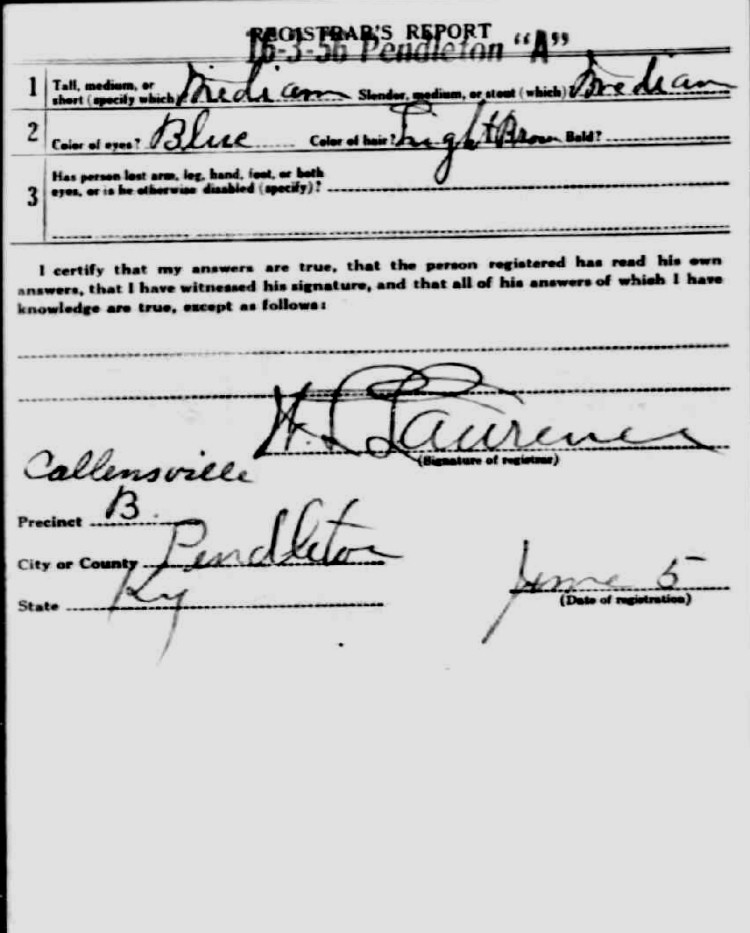 REGISTRAR'S REPORT
16-3-56 Pendleton "A"
1 Tall, medium, or short (specify which) Mediam Slender, medium, or stout (which)? Mediam
2 Color of eyes? Blue Color of hair? Light Brown Bald?
3 Has person lost arm, leg, hand, foot, or both
eyes, or is he otherwise disabled (specify)?
I certify that my answers are true, that the person registered has read his own
answers, that I have witnessed his signature, and that all of his answers of which I have
knowledge are true, except as follows:
Lawrence
(Signature of registrar)
Callensville
Precinct B
City or County Pendleton
State Ky
June 5
(Date of registration)